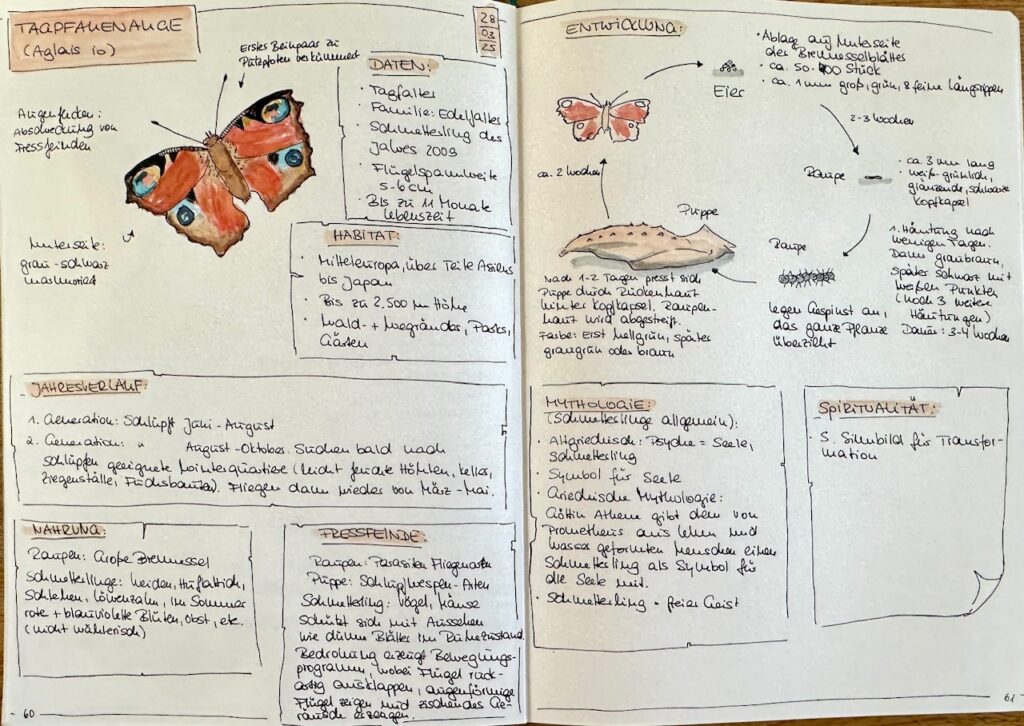 TAGPFAUENAUGE
(Aglais io)
28
03
25
Erstes Beinpaar zu
Putzpfoten verkümmert
Augenflecken:
Abschreckung von
Fressfeinden
Unterseite:
grau-schwarz
marmoriert
DATEN:
· Tagfalter
· Familie: Edelfalter
· Schmetterling des
Jahres 2009
· Flügelspannweite
5-6 cm
· Bis zu 11 Monate
Lebenszeit
HABITAT:
· Mitteleuropa, über Teile Asiens
bis Japan
· Bis zu 2.500 m Höhe
· Wald- + Wegränder, Parks,
Gärten
JAHRESVERLAUF:
1. Generation: Schlüpft Juni-August
2. Generation: " August-Oktober. Suchen bald nach
schlüpfen geeignete Winterquartiere (leicht feuchte Höhlen, Keller,
Ziegenställe, Fuchsbauten). Fliegen dann wieder von März-Mai.
NAHRUNG:
Raupen: Große Brennessel
Schmetterlinge: Weiden, Huflattich,
Schlehen, Löwenzahn, im Sommer
rote + blauviolette Blüten, Obst, etc.
(nicht wählerisch)
FRESSFEINDE:
Raupen: Parasiten Fliegenarten
Puppe: Schlupfwespen-Arten
Schmetterling: Vögel, Mäuse
schützt sich mit Aussehen
wie dürre Blätter im Ruhezustand.
Bedrohung erzeugt Bewegungs-
programm, wobei Flügel ruck-
artig ausklappen, augenförmige
Flügel zeigen und zischendes Ge-
räusch erzeugen.
60
ENTWICKLUNG:
· Ablage auf Unterseite
der Brennesselblätter
· ca. 50-400 Stück
· ca. 1 mm groß, grün, 8 feine Längsrippen
Eier
2-3 Wochen
Raupe
· ca. 3 mm lang
· weiß-grünlich,
glänzende, schwarze
Kopfkapsel
1. Häutung nach
wenigen Tagen.
Dann graubraun,
später schwarz mit
weißen Punkten
(noch 3 weitere
Häutungen)
Dauer: 3-4 Wochen
Raupe
legen Gespinst an,
das ganze Pflanze
überzieht
Puppe
Nach 1-2 Tagen presst sich
Puppe durch Rückenhaut
hinter Kopfkapsel. Raupen-
haut wird abgestreift.
Farbe: Erst hellgrün, später
graugrün oder braun
ca. 2 Wochen
MYTHOLOGIE:
(Schmetterlinge allgemein):
· Altgriechisch: Psyche = Seele,
Schmetterling
· Symbol für Seele
· Griechische Mythologie:
Göttin Athene gibt dem von
Prometheus aus Lehm und
Wasser geformten Menschen einen
Schmetterling als Symbol für
die Seele mit.
· Schmetterling = freier Geist
SPIRITUALITÄT:
· S. Sinnbild für Transfor-
mation
61